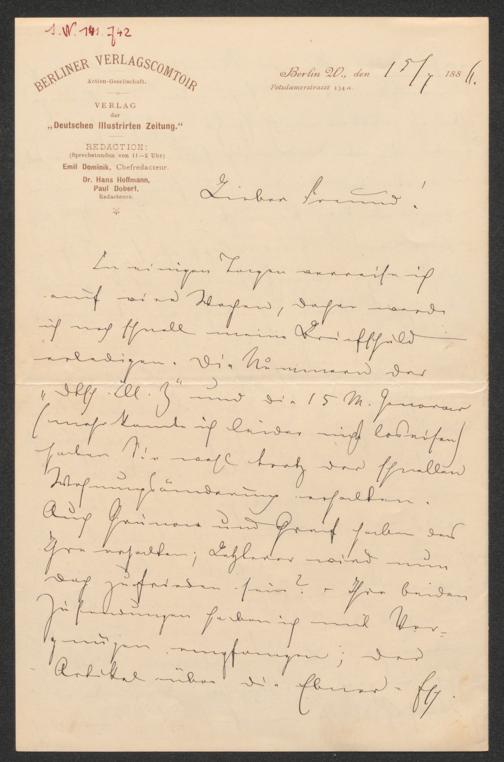 BERLINER VERLAGSCOMTOIR
Actien-Gesellschaft.
VERLAG
der
„Deutschen Illustrirten Zeitung."
REDACTION:
(Sprechstunden von 11—2 Uhr)
Emil Dominik, Chefredacteur.
Dr. Hans Hoffmann,
Paul Dobert,
Redacteure.
Berlin W., den 15/7 1886.
Potsdamerstrasse 134a.
Lieber Freund!
In einigen Tagen verreise ich
auf vier Wochen, daher werde
ich noch schnell meine Briefschuld
erledigen. Die Nummern der
„Dtsch. Ill. Z" und die 15 M. Honorar
(mehr konnte ich leider nicht loseisen)
haben Sie wohl trotz der schnellen
Wohnungsänderung erhalten.
Auch Grünow und Graf haben das
Ihre erhalten; Letzterer wird nun
doch zufrieden sein? - Ihre beiden
Zusendungen habe ich mit Ver-
gnügen empfangen; der
Artikel über die Ebner-Esch.